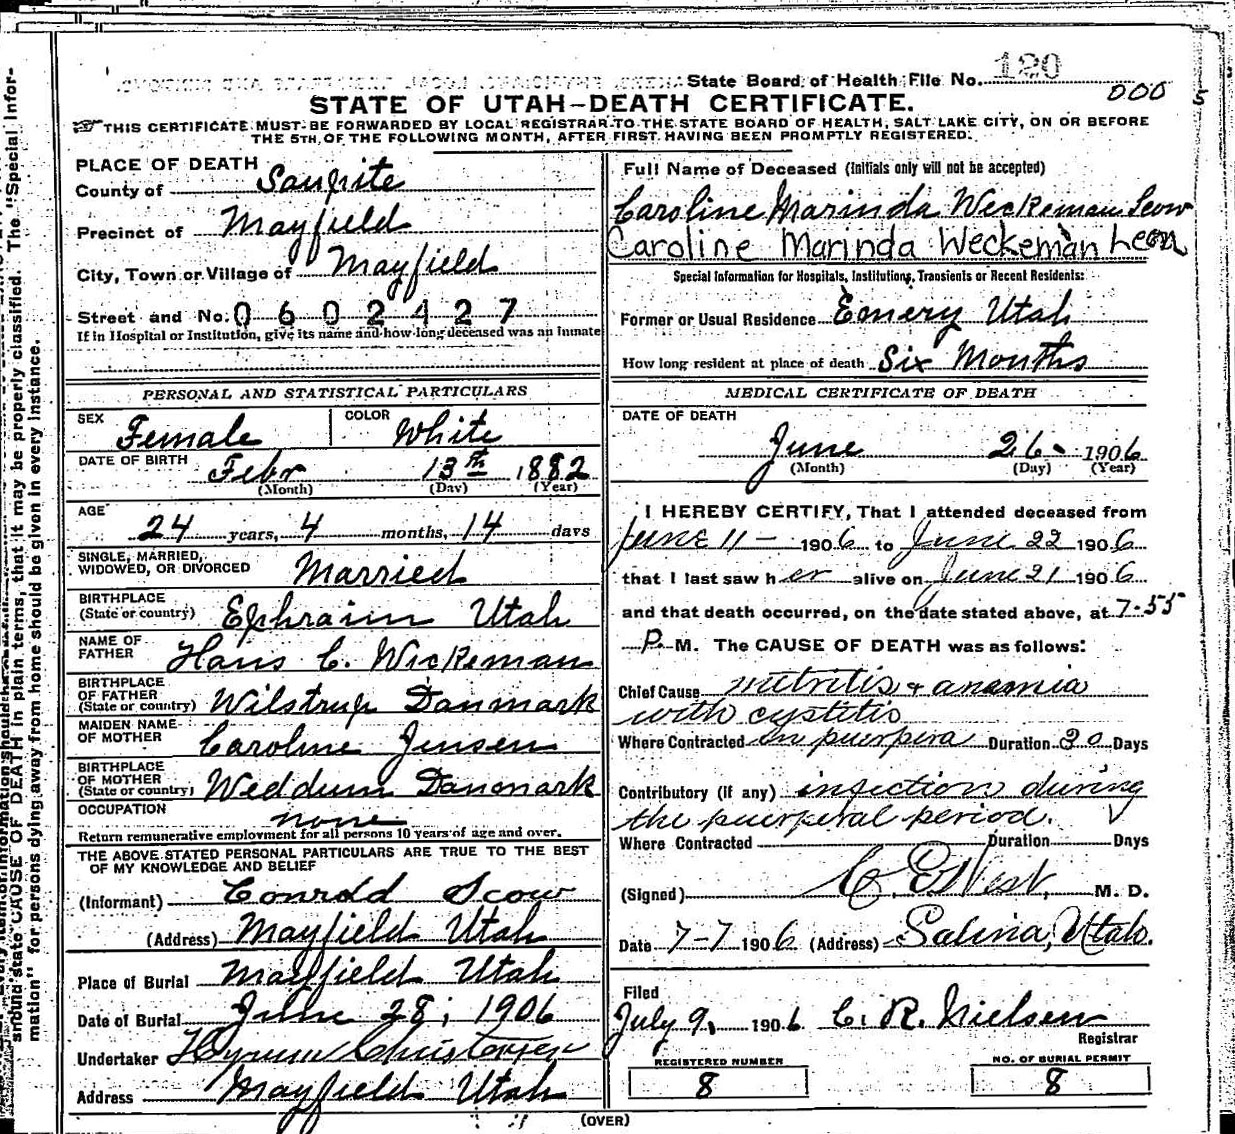 State Board of Health File No. 120
000 5
STATE OF UTAH-DEATH CERTIFICATE.
THIS CERTIFICATE MUST BE FORWARDED BY LOCAL REGISTRAR TO THE STATE BOARD OF HEALTH, SALT LAKE CITY, ON OR BEFORE
THE 5TH OF THE FOLLOWING MONTH, AFTER FIRST HAVING BEEN PROMPTLY REGISTERED.
PLACE OF DEATH
County of Sanpite
Precinct of Mayfield
City, Town or Village of Mayfield
Street and No. 0602427
If in Hospital or Institution, give its name and how long deceased was an inmate
PERSONAL AND STATISTICAL PARTICULARS
SEX Female COLOR White
DATE OF BIRTH Febr 13th 1882
(Month) (Day) (Year)
AGE
24 years, 4 months, 14 days
SINGLE, MARRIED,
WIDOWED, OR DIVORCED Married
BIRTHPLACE
(State or country) Ephraim Utah
NAME OF
FATHER Hans C. Wickeman
BIRTHPLACE
OF FATHER
(State or country) Wilstrup Danmark
MAIDEN NAME
OF MOTHER Caroline Jensen
BIRTHPLACE
OF MOTHER
(State or country) Weddum Danmark
OCCUPATION none
Return remunerative employment for all persons 10 years of age and over.
THE ABOVE STATED PERSONAL PARTICULARS ARE TRUE TO THE BEST
OF MY KNOWLEDGE AND BELIEF
(Informant) Conrold Scow
(Address) Mayfield Utah
Place of Burial Mayfield Utah
Date of Burial June 28, 1906
Undertaker Hyrum Christensen
Address Mayfield Utah
Full Name of Deceased (Initials only will not be accepted)
Caroline Marinda Weckeman Scow
Caroline Marinda Weckeman
Special Information for Hospitals, Institutions, Transients or Recent Residents:
Former or Usual Residence Emery Utah
How long resident at place of death Six Months
MEDICAL CERTIFICATE OF DEATH
DATE OF DEATH
June 26 1906
(Month) (Day) (Year)
I HEREBY CERTIFY, That I attended deceased from
June 11 - 1906 to June 22 1906
that I last saw her alive on June 21 1906
and that death occurred, on the date stated above, at 7-55
P. M. The CAUSE OF DEATH was as follows:
Chief Cause metritis & anamia
with cystitis
Where Contracted in puerpera Duration 30 Days
Contributory (if any) infection during
the puerperal period.
Where Contracted Duration Days
(Signed) C. E. West, M. D.
Date 7-7 1906 (Address) Salina, Utah.
Filed
July 9, 1906 C. R. Nielsen
Registrar
REGISTERED NUMBER
8
NO. OF BURIAL PERMIT
8
(OVER)
state CAUSE OF DEATH in plain terms, that it may be properly classified. The "Special Infor-
mation" for persons dying away from home should be given in every instance.